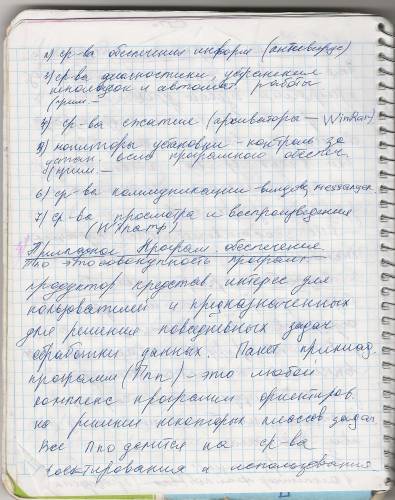 2) ср-ва обеспечения информ (антивирус)
3) ср-ва диагностики, устранения
неполадок и автомат работы
(прим —
4) ср-ва сжатия (архиваторы — WinRar)
5) мониторы установки — контроль за
устан. всего програмного обеспеч.
(прим. —
6) ср-ва коммуникации — messanger
7) ср-ва просмотра и воспроизведения
(Winamp)
Прикладное Програм. обеспечение
ППО это совокупность програм —
продуктов представ интерес для
пользователей и предназначенных
для решения повседневных задач
обработки данных. Пакет приклад.
программ (Ппп) — это любой
комплекс программ ориентиров.
на решение некоторых классов задач
Все Ппо делится на ср-ва
проектирования и использования.